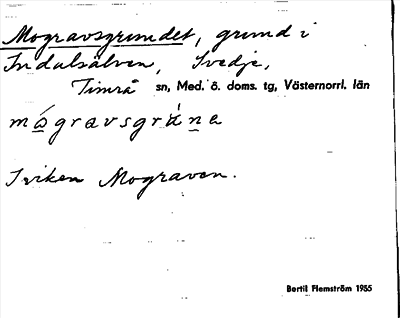 Mogravsgrundet, grund i
Indalsälven, Svedje,
Timrå sn, Med. ö. doms. tg, Västernorrl. län
mogravsgrúna
I viken Mograven.
Bertil Flemström 1955